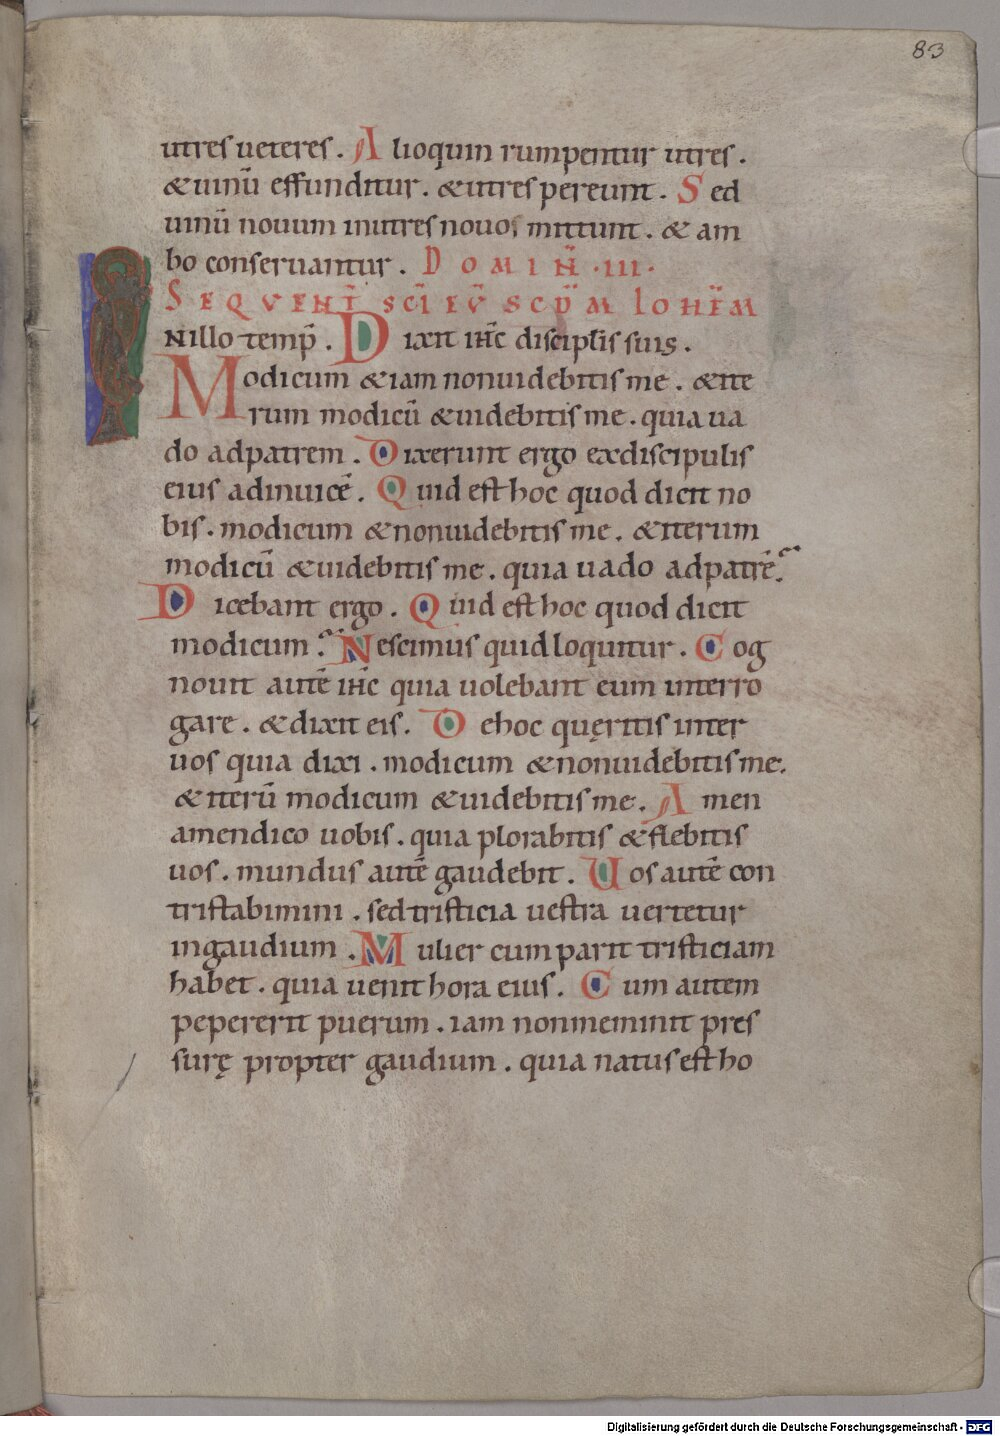 83
utres ueteres. Alioquin rumpentur utres.
& uinū effunditur. & utres pereunt. Sed
uinū nouum in utres nouos mittunt. & am
bo conseruantur. DOMIN̄ .III.
SEQVENT̄ SC̄I EV̄ SCD̄M IOHEM
IN illo temp̄. Dixit ih̄c discipl̄is suis.
Modicum & iam non uidebitis me. & ite
rum modicū & uidebitis me. quia ua
do ad patrem. Dixerunt ergo ex discipulis
eius ad inuicē. Quid est hoc quod dicit no
bis. modicum & non uidebitis me. & iterum
modicū & uidebitis me. quia uado ad patrē?
Dicebant ergo. Quid est hoc quod dicit
modicum? Nescimus quid loquitur. Cog
nouit autē ih̄c quia uolebant eum interro
gare. & dixit eis. De hoc quęritis inter
uos quia dixi. modicum & non uidebitis me.
& iterū modicum & uidebitis me. Amen
amen dico uobis. quia plorabitis & flebitis
uos. mundus autē gaudebit. Uos autē con
tristabimini. sed tristicia uestra uertetur
in gaudium. Mulier cum parit tristiciam
habet. quia uenit hora eius. Cum autem
pepererit puerum. iam non meminit pres
surę propter gaudium. quia natus est ho
Digitalisierung gefördert durch die Deutsche Forschungsgemeinschaft - DFG